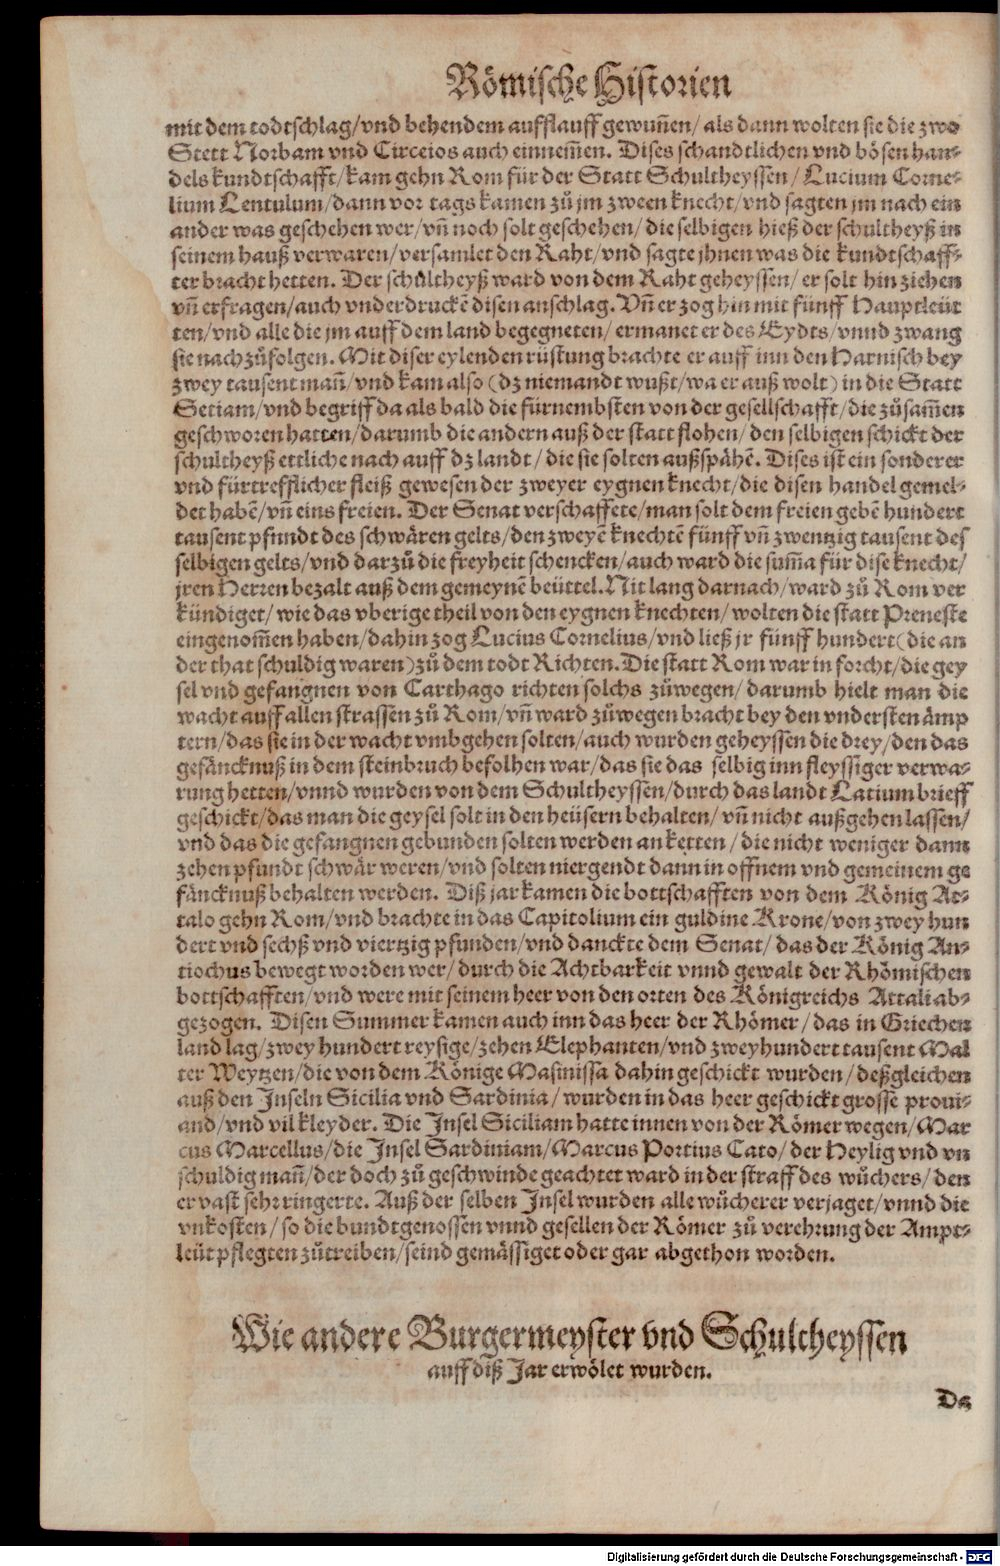 Römische Historien
mit dem todtschlag/vnd behendem aufflauff gewuñen/ als dann wolten sie die zwo
Stett Norbam vnd Circeios auch einnem̃en. Dises schandtlichen vnd bösen han-
dels kundtschafft/kam gehn Rom für der Statt Schultheyssen/ Lucium Corne-
lium Lentulum/dann vor tags kamen zů jm zween knecht/vnd sagten jm nach ein
ander was geschehen wer/vñ noch solt geschehen/ die selbigen hieß der schultheyß in
seinem hauß verwaren/versamlet den Raht/vnd sagte jhnen was die kundtschaff-
ter bracht hetten. Der schultheyß ward von dem Raht geheyssen/ er solt hin ziehen
vñ erfragen/auch vnderdruckē disen anschlag. Vñ er zog hin mit fünff Hauptleüt
ten/vnd alle die jm auff dem land begegneten/ ermanet er des Eydts/vnnd zwang
sie nach zůfolgen. Mit diser eylenden rüstung brachte er auff inn den Harnisch bey
zwey tausent mañ/vnd kam also (dz niemandt wußt/wa er auß wolt) in die Statt
Setiam/vnd begriff da als bald die fürnembsten von der gesellschafft/die zůsam̃en
geschworen hatten/darumb die andern auß der statt flohen/den selbigen schickt der
schultheyß ettliche nach auff dz landt/die sie solten außspåhē. Dises ist ein sonderer
vnd fürtrefflicher fleiß gewesen der zweyer eygnen knecht/die disen handel gemel-
det habē/vñ eins freien. Der Senat verschaffete/man solt dem freien gebē hundert
tausent pfundt des schwären gelts/den zweyē knechtē fünff vñ zwentzig tausent des
selbigen gelts/vnd darzů die freyheit schencken/auch ward die sum̃a für dise knecht/
jren Herren bezalt auß dem gemeynē beüttel. Nit lang darnach/ward zů Rom ver
kündiget/wie das vberige theil von den eygnen knechten/wolten die statt Preneste
eingenom̃en haben/dahin zog Lucius Cornelius/vnd ließ jr fünff hundert(die an
der that schuldig waren)zů dem todt Richten. Die statt Rom war in forcht/die gey
sel vnd gefangnen von Carthago richten solchs zůwegen/ darumb hielt man die
wacht auff allen strassen zů Rom/vñ ward zůwegen bracht bey den vndersten ämp
tern/das sie in der wacht vmbgehen solten/auch wurden geheyssen die drey/den das
gefäncknuß in dem steinbruch befolhen war/das sie das selbig inn fleyssiger verwa-
rung hetten/vnnd wurden von dem Schultheyssen/durch das landt Latium brieff
geschickt/das man die geysel solt in den heüsern behalten/vñ nicht außgehen lassen/
vnd das die gefangnen gebunden solten werden an ketten/die nicht weniger dann
zehen pfundt schwär weren/vnd solten niergendt dann in offnem vnd gemeinem ge
fäncknuß behalten werden. Diß jar kamen die bottschafften von dem König At-
talo gehn Rom/vnd brachte in das Capitolium ein guldine Krone/von zwey hun
dert vnd sechß vnd viertzig pfunden/vnd danckte dem Senat/das der König An-
tiochus bewegt worden wer/durch die Achtbarkeit vnnd gewalt der Rhömischen
bottschafften/vnd were mit seinem heer von den orten des Königreichs Attali ab-
gezogen. Disen Summer kamen auch inn das heer der Rhömer/das in Griechen
land lag/zwey hundert reysige/zehen Elephanten/vnd zweyhundert tausent Mal
ter Weytzen/die von dem Könige Masinissa dahin geschickt wurden/deßgleichen
auß den Inseln Sicilia vnd Sardinia/wurden in das heer geschickt grosse proui-
and/vnd vil kleyder. Die Insel Siciliam hatte innen von der Römer wegen/Mar
cus Marcellus/die Insel Sardiniam/Marcus Portius Cato/der Heylig vnd vn
schuldig mañ/der doch zů geschwinde geachtet ward in der straff des wůchers/den
er vast sehr ringerte. Auß der selben Insel wurden alle wůcherer verjaget/vnnd die
vnkosten/so die bundtgenossen vnnd gesellen der Römer zů verehrung der Ampt-
leüt pflegten zůtreiben/seind gemässiget oder gar abgethon worden.
Wie andere Burgermeyster vnd Schultheyssen
auff diß Jar erwölet wurden.
Da
Digitalisierung gefördert durch die Deutsche Forschungsgemeinschaft - DFG